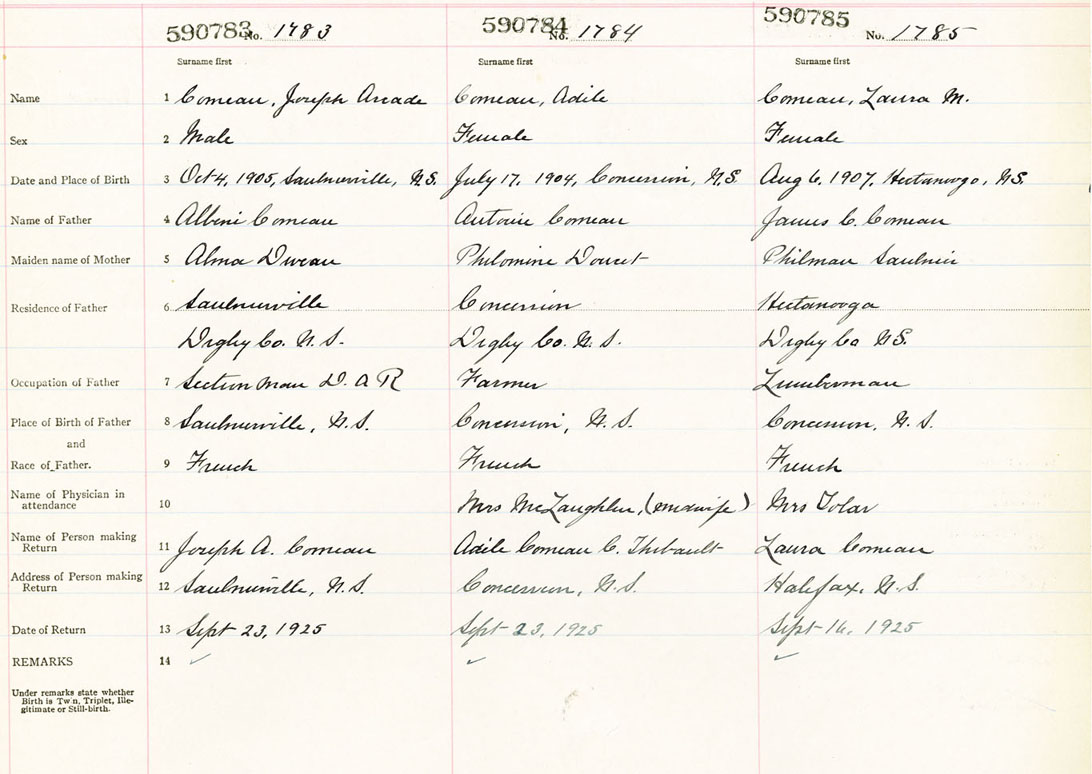 590783 No. 1783 590784 No. 1784 590785 No. 1785
Surname first Surname first Surname first
Name 1 Comeau, Joseph Arcade Comeau, Adile Comeau, Laura M.
Sex 2 Male Female Female
Date and Place of Birth 3 Oct 4, 1905, Saulnierville, N.S. July 17, 1904, Concession, N.S. Aug 6, 1907, Hectanooga, N.S.
Name of Father 4 Albeni Comeau Antoine Comeau James C. Comeau
Maiden name of Mother 5 Alma Duveau Philomine Doucet Philman Saulnier
Residence of Father 6 Saulnierville Concession Hectanooga
Digby Co. N.S. Digby Co. N.S. Digby Co N.S.
Occupation of Father 7 Section Man D. A R Farmer Lumberman
Place of Birth of Father 8 Saulnierville, N.S. Concession, N.S. Concession, N.S.
and
Race of Father. 9 French French French
Name of Physician in
attendance 10 Mrs McLaughlin, (midwife) Mrs Tolar
Name of Person making
Return 11 Joseph A. Comeau Adile Comeau C. Thibault Laura Comeau
Address of Person making
Return 12 Saulnierville, N.S. Concession, N.S. Halifax, N.S.
Date of Return 13 Sept 23, 1925 Sept 23, 1925 Sept 16, 1925
REMARKS 14 ✓ ✓ ✓
Under remarks state whether
Birth is Twin, Triplet, Ille-
gitimate or Still-birth.